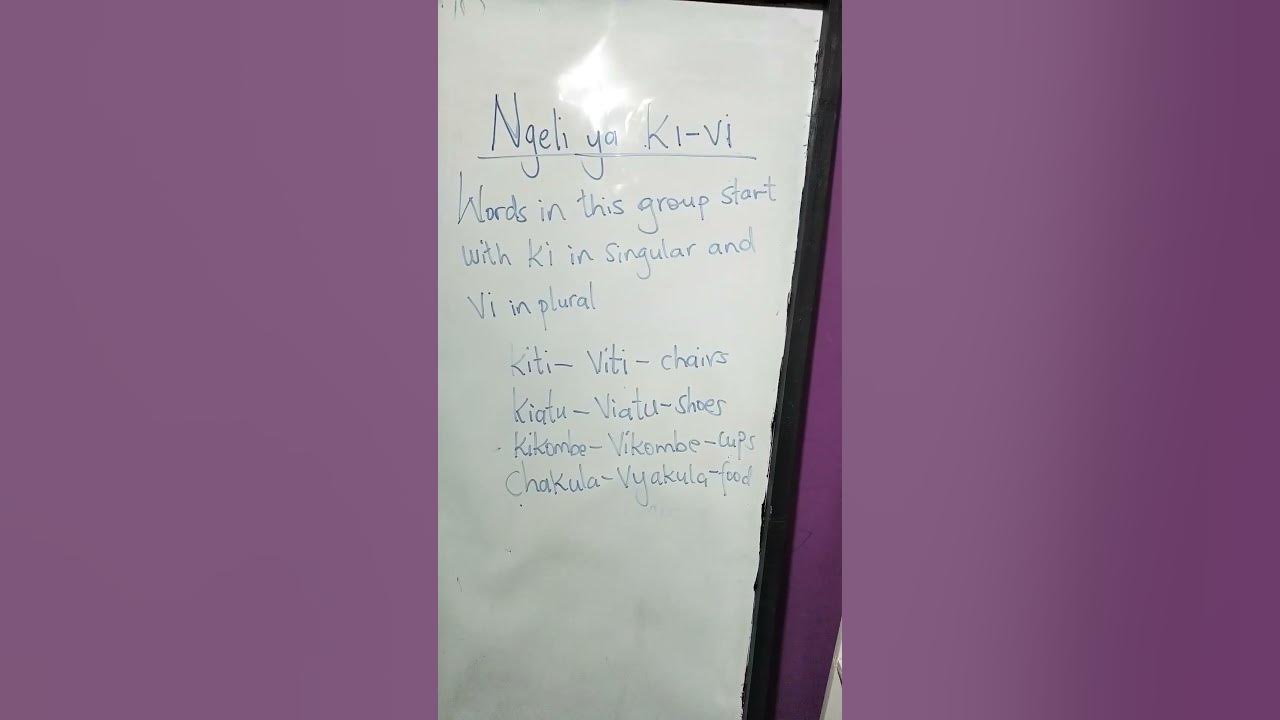 Ngeli ya Ki-vi
Words in this group start
with Ki in singular and
Vi in plural
Kiti- Viti- chairs
Kiatu-Viatu-shoes
Kikombe-Vikombe-cups
Chakula-Vyakula-food